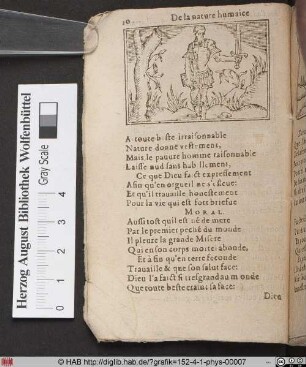 10.
De la nature humaine
A toute beste irraisonnable
Nature donne vestemens,
Mais le pauure homme raisonnable
Laisse nud sans habillemens,
Ce que Dieu faict expressement
Afin qu'en orgueil ne s'esleue:
Et qu'il trauaille honestement
Pour la vie qui est fort briefue
MORAL.
Aussi tost qu'il est né de mere
Par le premier peché du monde
Il pleure la grande Misere
Qui en son corps moitel abonde,
Et à fin qu'en terre feconde
Trauaille & que son salut face:
Dieu l'a faict si tresgrand au monde
Que toute beste craint sa face:
Dieu
Herzog August Bibliothek Wolfenbüttel
Gray Scale
1
2
3
4
© HAB http://diglib.hab.de/?grafik=152-4-1-phys-00007